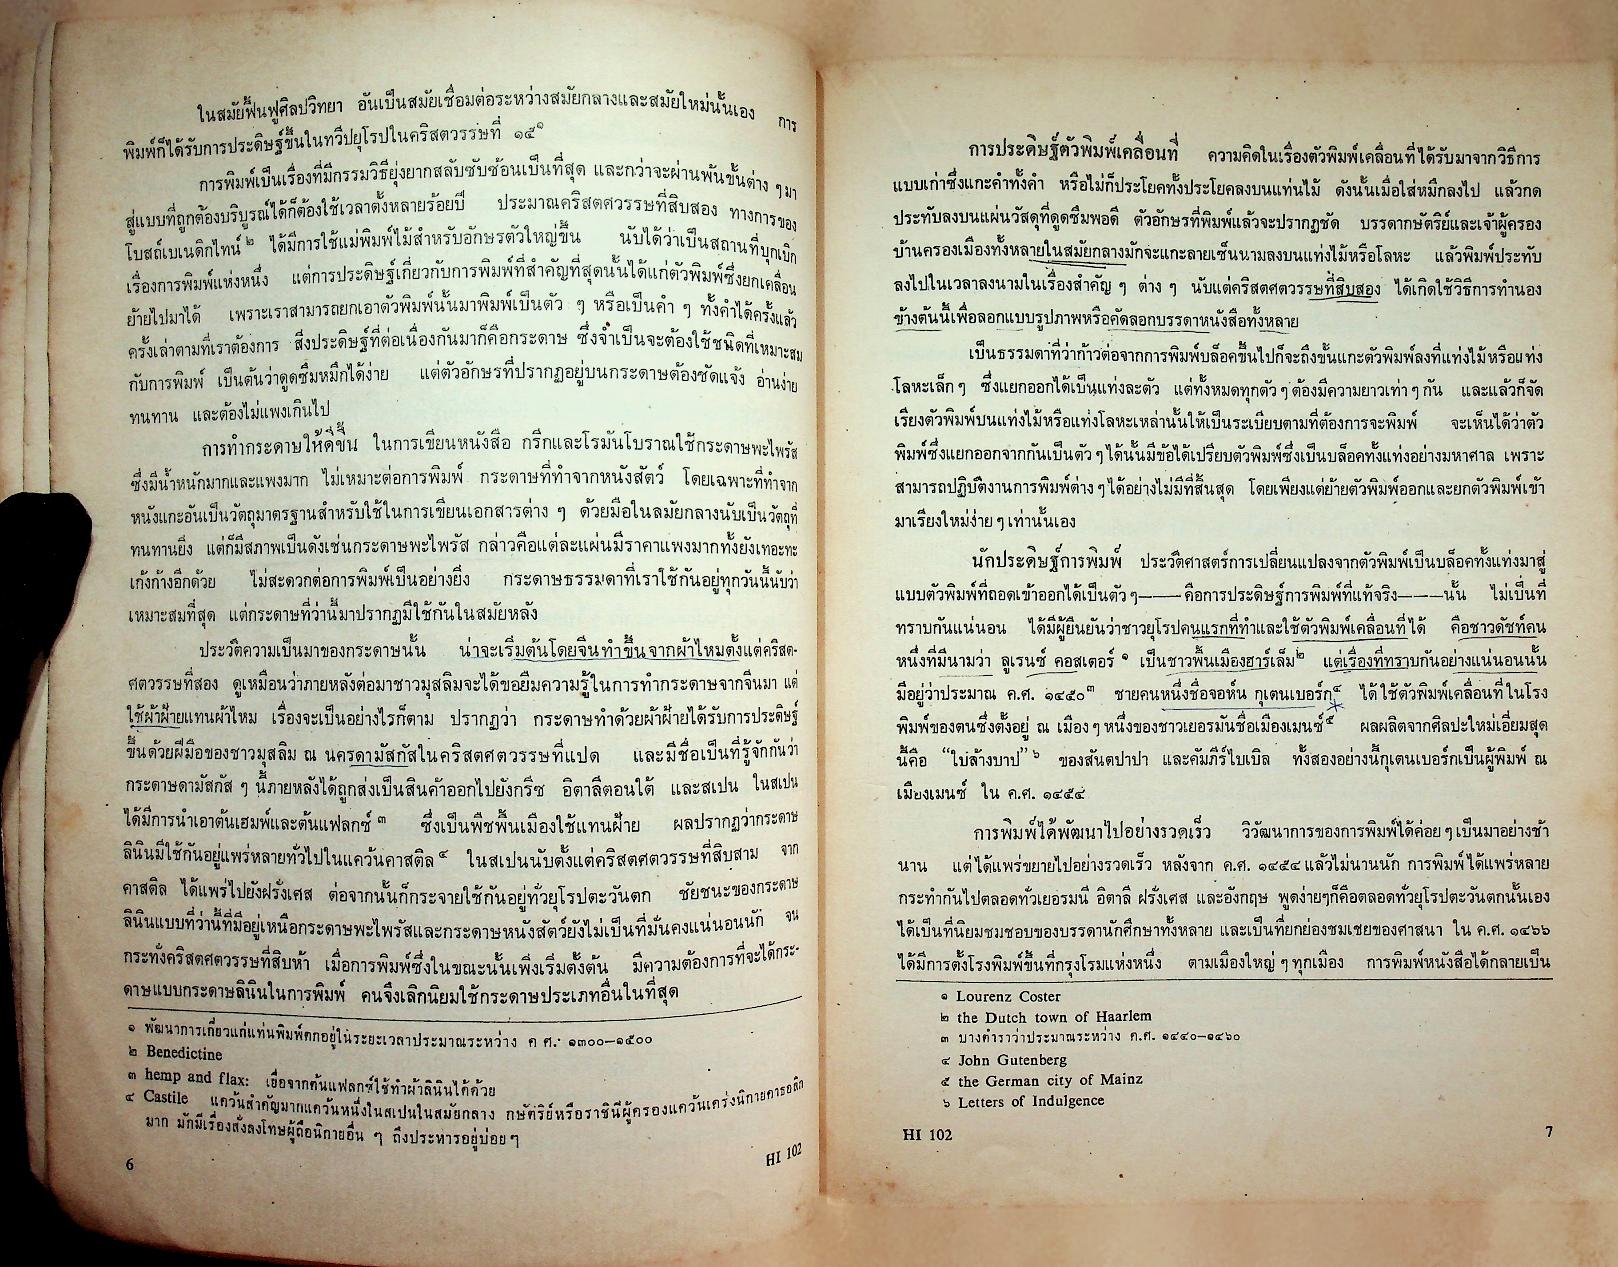 ในสมัยฟื้นฟูศิลปวิทยา อันเป็นสมัยเชื่อมต่อระหว่างสมัยกลางและสมัยใหม่นั้นเอง การ
พิมพ์ก็ได้รับการประดิษฐ์ขึ้นในทวีปยุโรปในคริสตวรรษที่ ๑๕๑
การพิมพ์เป็นเรื่องที่มีกรรมวิธียุ่งยากสลับซับซ้อนเป็นที่สุด และกว่าจะผ่านพ้นขั้นต่าง ๆ มา
สู่แบบที่ถูกต้องบริบูรณ์ได้ก็ต้องใช้เวลาตั้งหลายร้อยปี ประมาณคริสตศตวรรษที่สิบสอง ทางการของ
โบสถ์เบเนดิกไทน์๒ ได้มีการใช้แม่พิมพ์ไม้สำหรับอักษรตัวใหญ่ขึ้น นับได้ว่าเป็นสถานที่บุกเบิก
เรื่องการพิมพ์แห่งหนึ่ง แต่การประดิษฐ์เกี่ยวกับการพิมพ์ที่สำคัญที่สุดนั้นได้แก่ตัวพิมพ์ซึ่งยกเคลื่อน
ย้ายไปมาได้ เพราะเราสามารถยกเอาตัวพิมพ์นั้นมาพิมพ์เป็นตัว ๆ หรือเป็นคำ ๆ ทั้งคำได้ครั้งแล้ว
ครั้งเล่าตามที่เราต้องการ สิ่งประดิษฐ์ที่ต่อเนื่องกันมาก็คือกระดาษ ซึ่งจำเป็นจะต้องใช้ชนิดที่เหมาะสม
กับการพิมพ์ เป็นต้นว่าดูดซึมหมึกได้ง่าย แต่ตัวอักษรที่ปรากฏอยู่บนกระดาษต้องชัดแจ้ง อ่านง่าย
ทนทาน และต้องไม่แพงเกินไป
การทำกระดาษให้ดีขึ้น ในการเขียนหนังสือ กรีกและโรมันโบราณใช้กระดาษพะไพรัส
ซึ่งมีน้ำหนักมากและแพงมาก ไม่เหมาะต่อการพิมพ์ กระดาษที่ทำจากหนังสัตว์ โดยเฉพาะที่ทำจาก
หนังแกะอันเป็นวัตถุมาตรฐานสำหรับใช้ในการเขียนเอกสารต่าง ๆ ด้วยมือในสมัยกลางนับเป็นวัตถุที่
ทนทานยิ่ง แต่ก็มีสภาพเป็นดังเช่นกระดาษพะไพรัส กล่าวคือแต่ละแผ่นมีราคาแพงมากทั้งยังเทอะทะ
เก้งก้างอีกด้วย ไม่สะดวกต่อการพิมพ์เป็นอย่างยิ่ง กระดาษธรรมดาที่เราใช้กันอยู่ทุกวันนี้นับว่า
เหมาะสมที่สุด แต่กระดาษที่ว่านี้มาปรากฏมีใช้กันในสมัยหลัง
ประวัติความเป็นมาของกระดาษนั้น น่าจะเริ่มต้นโดยจีนทำขึ้นจากผ้าไหมตั้งแต่คริสต-
ศตวรรษที่สอง ดูเหมือนว่าภายหลังต่อมาชาวมุสลิมจะได้ขอยืมความรู้ในการทำกระดาษจากจีนมา แต่
ใช้ผ้าฝ้ายแทนผ้าไหม เรื่องจะเป็นอย่างไรก็ตาม ปรากฏว่า กระดาษทำด้วยผ้าฝ้ายได้รับการประดิษฐ์
ขึ้นด้วยฝีมือของชาวมุสลิม ณ นครดามัสกัสในคริสตศตวรรษที่แปด และมีชื่อเป็นที่รู้จักกันว่า
กระดาษดามัสกัส ๆ นี้ภายหลังได้ถูกส่งเป็นสินค้าออกไปยังกรีซ อิตาลีตอนใต้ และสเปน ในสเปน
ได้มีการนำเอาต้นเฮมพ์และต้นแฟลกซ์๓ ซึ่งเป็นพืชพื้นเมืองใช้แทนฝ้าย ผลปรากฏว่ากระดาษ
ลินินมีใช้กันอยู่แพร่หลายทั่วไปในแคว้นคาสติล๔ ในสเปนนับตั้งแต่คริสตศตวรรษที่สิบสาม จาก
คาสติล ได้แพร่ไปยังฝรั่งเศส ต่อจากนั้นก็กระจายใช้กันอยู่ทั่วยุโรปตะวันตก ชัยชนะของกระดาษ
ลินินแบบที่ว่านี้ที่มีอยู่เหนือกระดาษพะไพรัสและกระดาษหนังสัตว์ยังไม่เป็นที่มั่นคงแน่นอนนัก จน
กระทั่งคริสตศตวรรษที่สิบห้า เมื่อการพิมพ์ซึ่งในขณะนั้นเพิ่งเริ่มตั้งต้น มีความต้องการที่จะได้กระ-
ดาษแบบกระดาษลินินในการพิมพ์ คนจึงเลิกนิยมใช้กระดาษประเภทอื่นในที่สุด
๑ พัฒนาการเกี่ยวแก่แท่นพิมพ์ตกอยู่ในระยะเวลาประมาณระหว่าง ค ศ. ๑๓๐๐–๑๕๐๐
๒ Benedictine
๓ hemp and flax: เยื่อจากต้นแฟลกซ์ใช้ทำผ้าลินินได้ด้วย
๔ Castile แคว้นสำคัญมากแคว้นหนึ่งในสเปนในสมัยกลาง กษัตริย์หรือราชินีผู้ครองแคว้นเคร่งนิกายคาธอลิก
มาก มักมีเรื่องสั่งลงโทษผู้ถือนิกายอื่น ๆ ถึงประหารอยู่บ่อย ๆ
6
HI 102
การประดิษฐ์ตัวพิมพ์เคลื่อนที่ ความคิดในเรื่องตัวพิมพ์เคลื่อนที่ได้รับมาจากวิธีการ
แบบเก่าซึ่งแกะคำทั้งคำ หรือไม่ก็ประโยคทั้งประโยคลงบนแท่นไม้ ดังนั้นเมื่อใส่หมึกลงไป แล้วกด
ประทับลงบนแผ่นวัสดุที่ดูดซึมพอดี ตัวอักษรที่พิมพ์แล้วจะปรากฏชัด บรรดากษัตริย์และเจ้าผู้ครอง
บ้านครองเมืองทั้งหลายในสมัยกลางมักจะแกะลายเซ็นนามลงบนแท่งไม้หรือโลหะ แล้วพิมพ์ประทับ
ลงไปในเวลาลงนามในเรื่องสำคัญ ๆ ต่าง ๆ นับแต่คริสตศตวรรษที่สิบสอง ได้เกิดใช้วิธีการทำนอง
ข้างต้นนี้เพื่อลอกแบบรูปภาพหรือคัดลอกบรรดาหนังสือทั้งหลาย
เป็นธรรมดาที่ว่าก้าวต่อจากการพิมพ์บล็อคขึ้นไปก็จะถึงขั้นแกะตัวพิมพ์ลงที่แท่งไม้หรือแท่ง
โลหะเล็ก ๆ ซึ่งแยกออกได้เป็นแท่งละตัว แต่ทั้งหมดทุกตัว ๆ ต้องมีความยาวเท่า ๆ กัน และแล้วก็จัด
เรียงตัวพิมพ์บนแท่งไม้หรือแท่งโลหะเหล่านั้นให้เป็นระเบียบตามที่ต้องการจะพิมพ์ จะเห็นได้ว่าตัว
พิมพ์ซึ่งแยกออกจากกันเป็นตัว ๆ ได้นั้นมีข้อได้เปรียบตัวพิมพ์ซึ่งเป็นบล็อคทั้งแท่งอย่างมหาศาล เพราะ
สามารถปฏิบัติงานการพิมพ์ต่าง ๆ ได้อย่างไม่มีที่สิ้นสุด โดยเพียงแต่ย้ายตัวพิมพ์ออกและยกตัวพิมพ์เข้า
มาเรียงใหม่ง่าย ๆ เท่านั้นเอง
นักประดิษฐ์การพิมพ์ ประวัติศาสตร์การเปลี่ยนแปลงจากตัวพิมพ์เป็นบล็อคทั้งแท่งมาสู่
แบบตัวพิมพ์ที่ถอดเข้าออกได้เป็นตัว ๆ——คือการประดิษฐ์การพิมพ์ที่แท้จริง——นั้น ไม่เป็นที่
ทราบกันแน่นอน ได้มีผู้ยืนยันว่าชาวยุโรปคนแรกที่ทำและใช้ตัวพิมพ์เคลื่อนที่ได้ คือชาวดัชท์คน
หนึ่งที่มีนามว่า ลูเรนซ์ คอสเตอร์๑ เป็นชาวพื้นเมืองฮาร์เล็ม๒ แต่เรื่องที่ทราบกันอย่างแน่นอนนั้น
มีอยู่ว่าประมาณ ค.ศ. ๑๔๕๐๓ ชายคนหนึ่งชื่อจอห์น กูเตนเบอร์ก๔ ได้ใช้ตัวพิมพ์เคลื่อนที่ในโรง
พิมพ์ของตนซึ่งตั้งอยู่ ณ เมือง ๆ หนึ่งของชาวเยอรมันชื่อเมืองเมนซ์๕ ผลผลิตจากศิลปะใหม่เอี่ยมสุด
นี้คือ “ใบล้างบาป”๖ ของสันตปาปา และคัมภีร์ไบเบิล ทั้งสองอย่างนี้กูเตนเบอร์กเป็นผู้พิมพ์ ณ
เมืองเมนซ์ ใน ค.ศ. ๑๔๕๔
การพิมพ์ได้พัฒนาไปอย่างรวดเร็ว วิวัฒนาการของการพิมพ์ได้ค่อย ๆ เป็นมาอย่างช้า
นาน แต่ได้แพร่ขยายไปอย่างรวดเร็ว หลังจาก ค.ศ. ๑๔๕๔ แล้วไม่นานนัก การพิมพ์ได้แพร่หลาย
กระทำกันไปตลอดทั่วเยอรมนี อิตาลี ฝรั่งเศส และอังกฤษ พูดง่ายๆก็คือตลอดทั่วยุโรปตะวันตกนั้นเอง
ได้เป็นที่นิยมชมชอบของบรรดานักศึกษาทั้งหลาย และเป็นที่ยกย่องชมเชยของศาสนา ใน ค.ศ. ๑๔๖๖
ได้มีการตั้งโรงพิมพ์ขึ้นที่กรุงโรมแห่งหนึ่ง ตามเมืองใหญ่ ๆ ทุกเมือง การพิมพ์หนังสือได้กลายเป็น
๑ Lourenz Coster
๒ the Dutch town of Haarlem
๓ บางตำราว่าประมาณระหว่าง ค.ศ. ๑๔๔๐–๑๔๖๐
๔ John Gutenberg
๕ the German city of Mainz
๖ Letters of Indulgence
HI 102
7